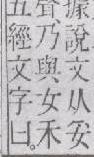 據說文从妥
乃與女禾
五經文字曰